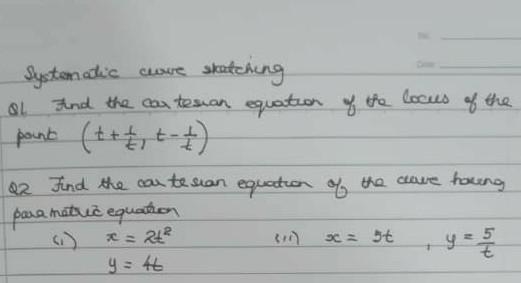 No.
Date
Systematic curve sketching
Q1 Find the cartesian equation of the locus of the
point (t + 1/t, t - 1/t)
Q2 Find the cartesian equation of the curve having
parametric equation
(i) x = 2t² (ii) x = 5t , y = 5/t
y = 4t